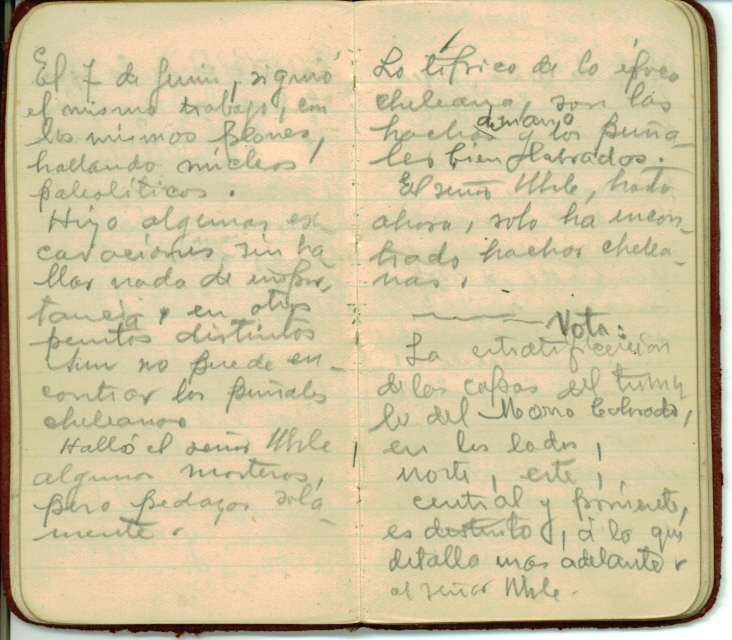 El 7 de Junio, siguió
el mismo trabajo, con
los mismos peones,
hallando núcleos
paleolíticos.
Hizo algunas ex-
cavaciones sin ha-
llar nada de impor-
tancia, en otros
puntos distintos
Aun no puede en-
contrar los puñales
cheleanos
Halló el señor Uhle,
algunos morteros,
pero pedazos sola-
mente.
Lo típico de la época
cheleana, son las
hachas de mano y los puña-
les bien labrados.
El señor Uhle, hasta
ahora, solo ha encon-
trado hachas chelea-
nas.
Nota:
La estratificación
de las capas del túmu-
lo del Morro Colorado,
en los lados,
norte, este,
central y poniente,
es distinto, á lo que
detalla mas adelante
el señor Uhle.